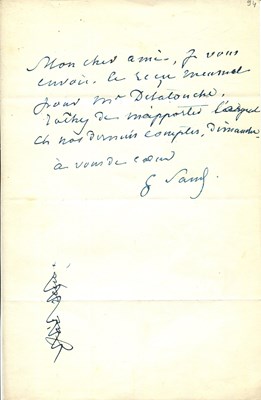 Mon cher ami, je vous
envoie le reçu mensuel
pour Mr Delatouche.
Tâchez de m'apporter l'argent
de nos derniers comptes, dimanche.
à vous de cœur
G Sand